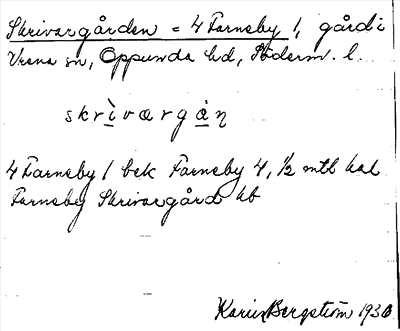 Skrivargården = 4 Farneby 1, gård i
Vrena sn, Oppunda hd, Söderm. l.
skrìvargàṇ
4 Farneby 1 bek Farneby 4, 1/2 mtl kal
Farneby Skrivargård kb
Karin Bergström 1930